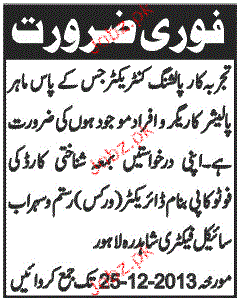 فوری ضرورت
تجربہ کار پالشنگ کنٹریکٹر جس کے پاس ماہر
پالیشر کاریگر و افراد موجود ہوں کی ضرورت
ہے۔ اپنی درخواستیں بمعہ شناختی کارڈ کی
فوٹو کاپی بنام ڈائریکٹر (ورکس) رستم و سہراب
سائیکل فیکٹری شاہدرہ لاہور
مورخہ 25-12-2013 تک جمع کروائیں